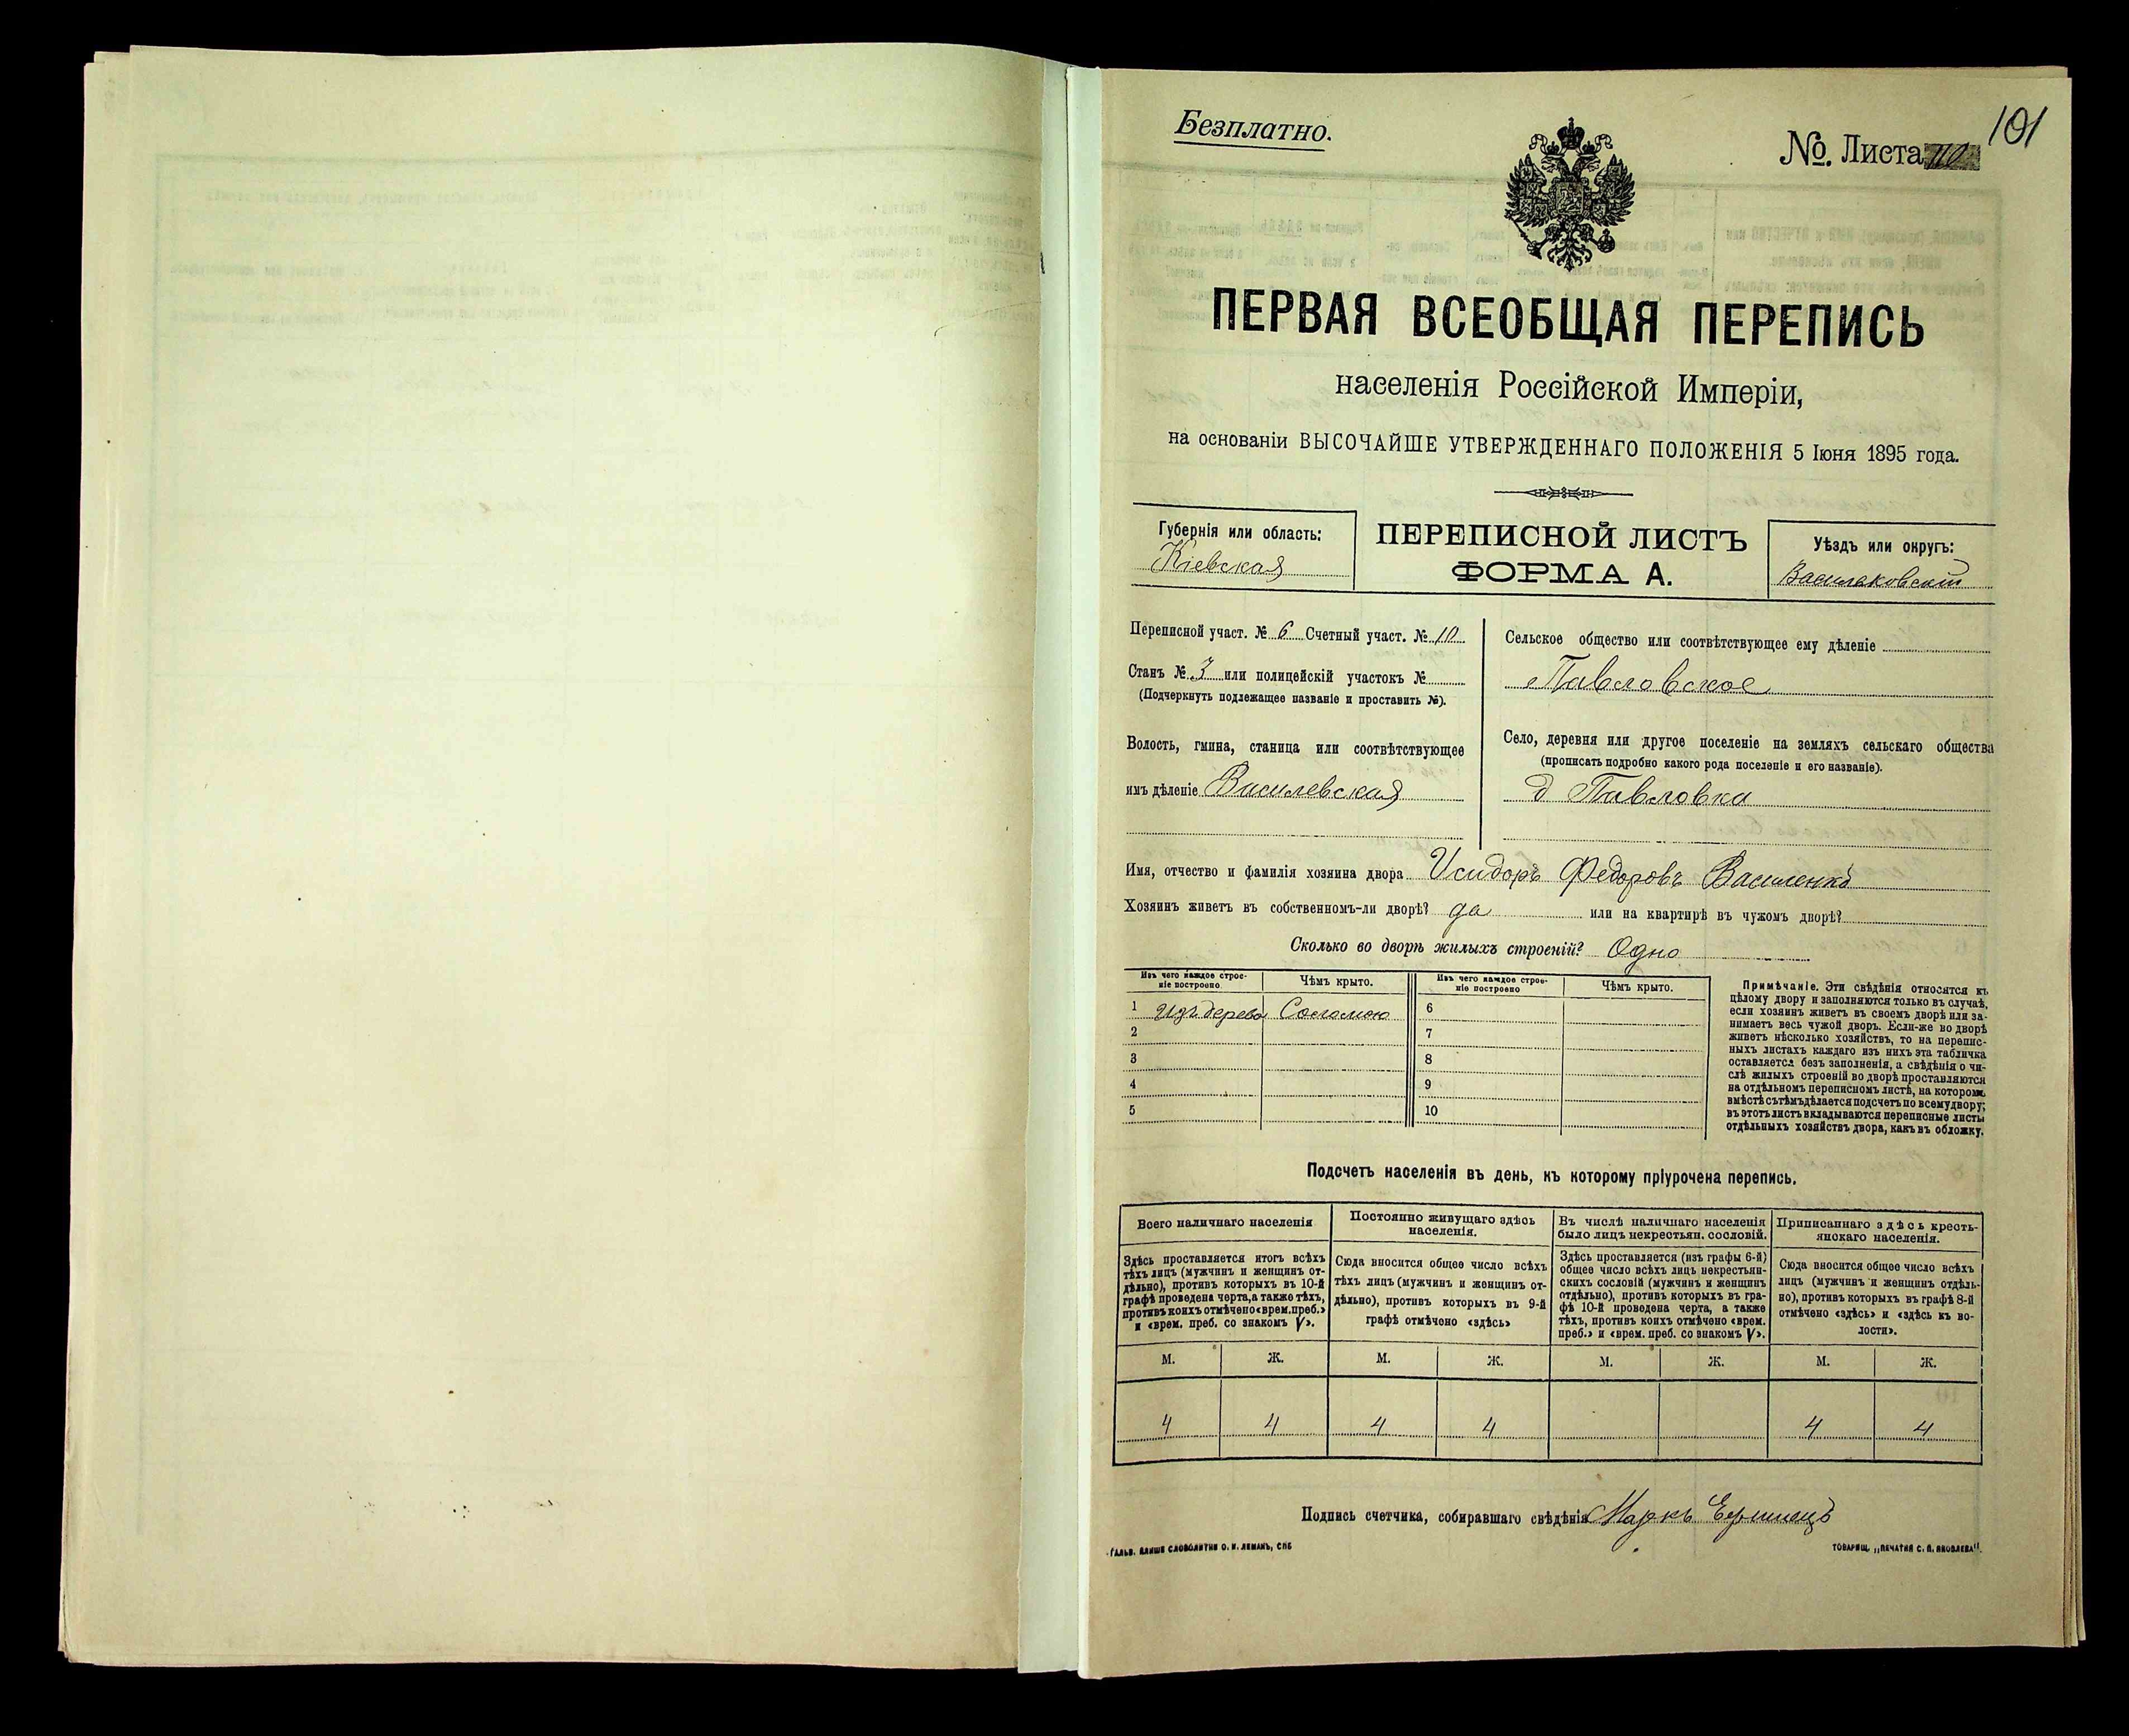 Безплатно.
№ Листа 110
101
ПЕРВАЯ ВСЕОБЩАЯ ПЕРЕПИСЬ
населенія Россійской Имперіи,
на основаніи ВЫСОЧАЙШЕ УТВЕРЖДЕННАГО ПОЛОЖЕНІЯ 5 Іюня 1895 года.
Губернія или область:
Кіевская
ПЕРЕПИСНОЙ ЛИСТЪ
ФОРМА А.
Уѣздъ или округъ:
Васильковскій
Переписной участ. № 6 Счетный участ. № 10
Станъ № 3 или полицейскій участокъ №
(Подчеркнуть подлежащее названіе и проставить №).
Волость, гмина, станица или соотвѣтствующее
имъ дѣленіе Василевская
Сельское общество или соотвѣтствующее ему дѣленіе
Павловское
Село, деревня или другое поселеніе на земляхъ сельскаго общества
(прописать подробно какого рода поселеніе и его названіе).
д Павловка
Имя, отчество и фамилія хозяина двора Исидоръ Федоровъ Василенко
Хозяинъ живетъ въ собственномъ-ли дворѣ? да или на квартирѣ въ чужомъ дворѣ?
Сколько во дворѣ жилыхъ строеній? Одно
Изъ чего каждое строе-
ніе построено
Чѣмъ крыто.
Изъ чего каждое строе-
ніе построено
Чѣмъ крыто.
1 изъ дерева Соломою 6
2 7
3 8
4 9
5 10
Примѣчаніе. Эти свѣдѣнія относятся къ
цѣлому двору и заполняются только въ случаѣ,
если хозяинъ живетъ въ своемъ дворѣ или за-
нимаетъ весь чужой дворъ. Если-же во дворѣ
живетъ нѣсколько хозяйствъ, то на перепис-
ныхъ листахъ каждаго изъ нихъ эта табличка
оставляется безъ заполненія, а свѣдѣнія о чи-
слѣ жилыхъ строеній во дворѣ проставляются
на отдѣльномъ переписномъ листѣ, на которомъ
вмѣстѣ съ тѣмъ дѣлается подсчетъ по всему двору;
въ этотъ листъ вкладываются переписные листы
отдѣльныхъ хозяйствъ двора, какъ въ обложку.
Подсчетъ населенія въ день, къ которому пріурочена перепись.
Всего наличнаго населенія
Здѣсь проставляется итогъ всѣхъ
тѣхъ лицъ (мужчинъ и женщинъ от-
дѣльно), противъ которыхъ въ 10-й
графѣ проведена черта, а также тѣхъ,
противъ коихъ отмѣчено «врем. преб.»
и «врем. преб. со знакомъ V».
Постоянно живущаго здѣсь
населенія.
Сюда вносится общее число всѣхъ
тѣхъ лицъ (мужчинъ и женщинъ от-
дѣльно), противъ которыхъ въ 9-й
графѣ отмѣчено «здѣсь»
Въ числѣ наличнаго населенія
было лицъ некрестьян. сословій.
Здѣсь проставляется (изъ графы 6-й)
общее число всѣхъ лицъ некрестьян-
скихъ сословій (мужчинъ и женщинъ
отдѣльно), противъ которыхъ въ гра-
фѣ 10-й проведена черта, а также
тѣхъ, противъ коихъ отмѣчено «врем.
преб.» и «врем. преб. со знакомъ V».
Приписаннаго здѣсь кресть-
янскаго населенія.
Сюда вносится общее число всѣхъ
лицъ (мужчинъ и женщинъ отдѣль-
но), противъ которыхъ въ графѣ 8-й
отмѣчено «здѣсь» и «здѣсь къ во-
лости».
М. Ж. М. Ж. М. Ж. М. Ж.
4 4 4 4 4 4
Подпись счетчика, собиравшаго свѣдѣнія Маркъ
ГАЛЬВ. КЛИШЕ СЛОВОЛИТНИ О. И. ЛЕМАНЪ, СПБ
ТОВАРИЩ. „ПЕЧАТНЯ С. П. ЯКОВЛЕВА".